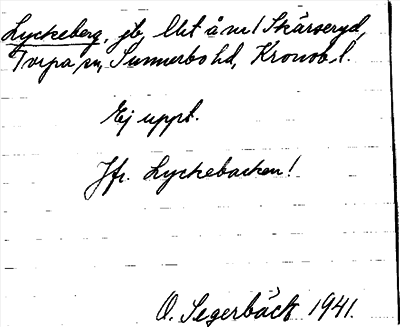 Lyckeberg, jb, lht å nr 1 Skärseryd,
Torpa sn, Sunnerbo hd, Kronob. l.
Ej uppt.
Jfr. Lyckebacken!
O. Segerbäck 1941.